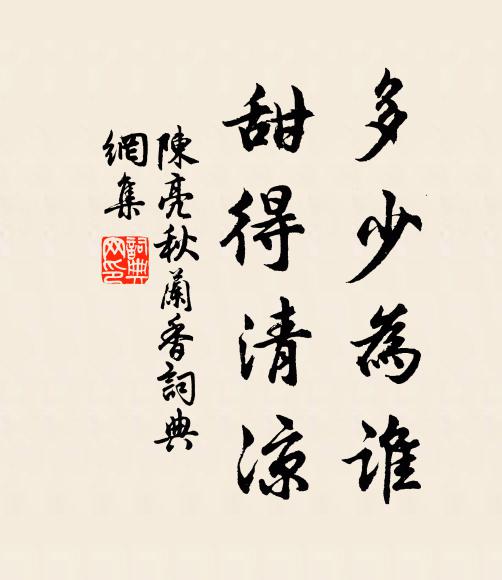 多少為誰
甜得清涼
陳亮秋蘭香詞典
網集
詞典
网印